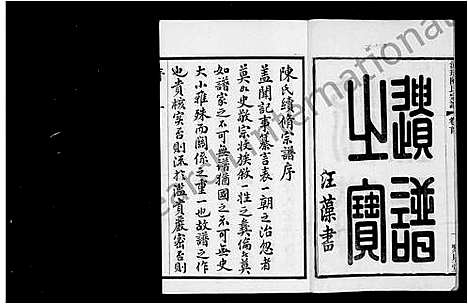 譜
之寶
汪藻書
陳氏續脩宗譜序
蓋聞記事纂言表一朝之治忽者
莫如史敬宗收族敘一姓之彝倫者莫
如譜家之不可無譜猶國之不可無史
大小雖殊而關係之重一也故譜之作
也貴核實否則流於濫貴嚴密否則